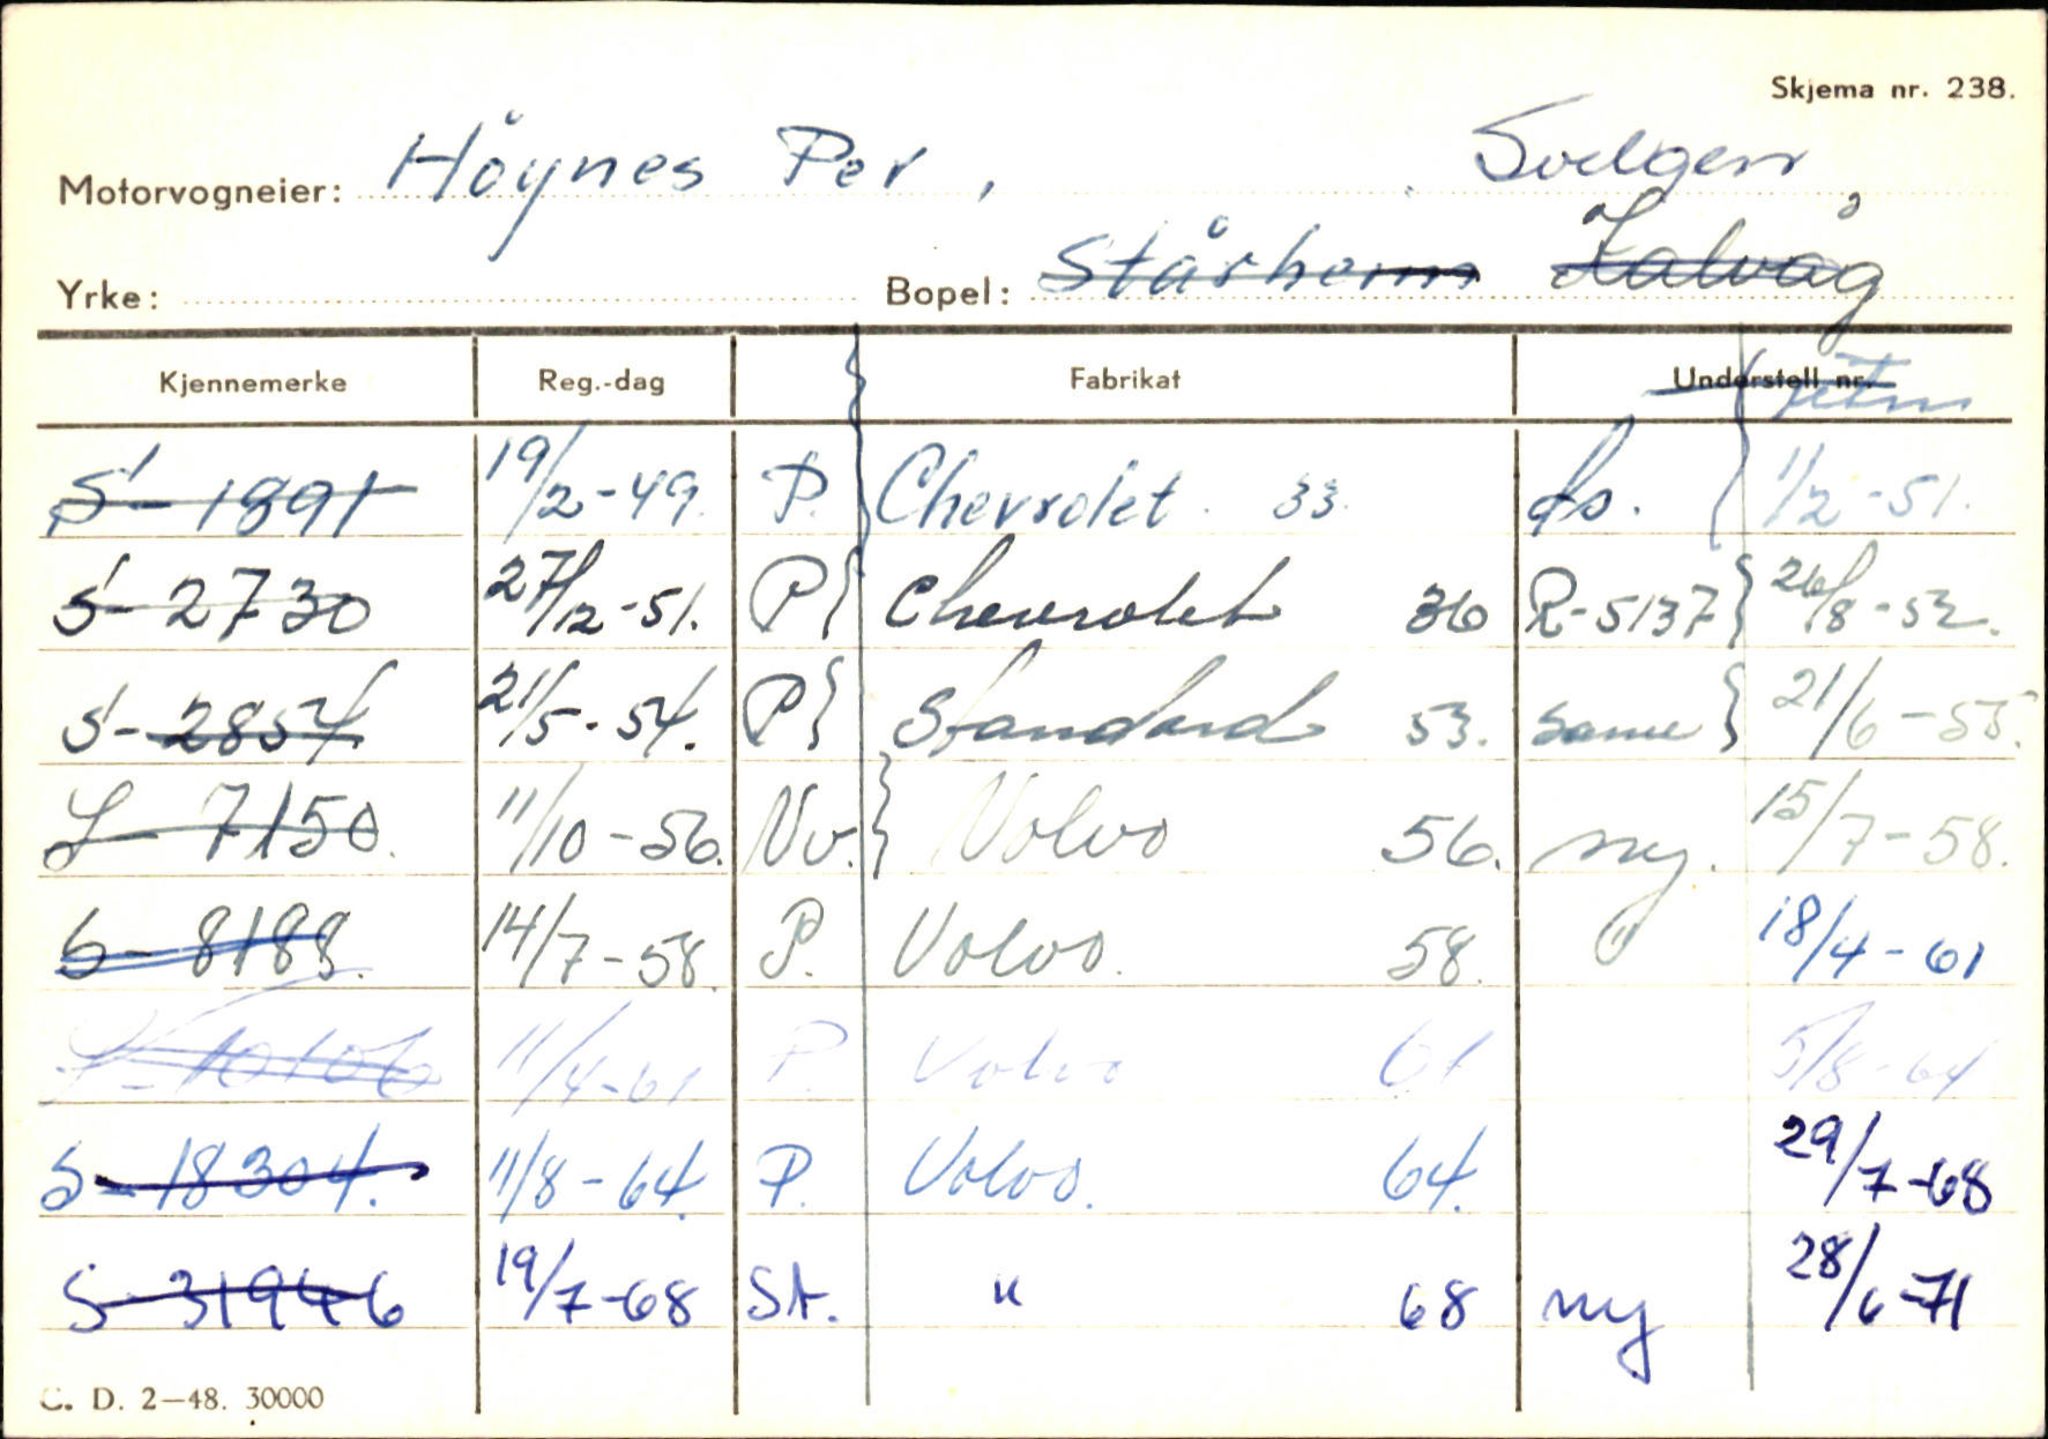 Skjema nr. 238.
Motorvogneier: Höynes Per, Svelgen
Yrke: Bopel: Stårheim Kalvåg
Kjennemerke Reg.-dag Fabrikat Understell nr.
S-1891 19/2-49. P. Chevrolet. 33. do. 1/2-51.
S-2730 27/12-51. P Chevrolet 36 R-5137 26/8-52.
S-2854 21/5-54. P Standard 53. same 21/6-55.
S-7150. 11/10-56. Vv. Volvo 56. ny. 15/7-58.
S-8188. 14/7-58. P. Volvo. 58. 18/4-61
S-10106 11/4-61 P. Volvo 61 5/8-64
S-18304. 11/8-64. P. Volvo. 64. 29/7-68
S-31946 19/7-68 St. " 68 ny 28/6-71
C. D. 2—48. 30000